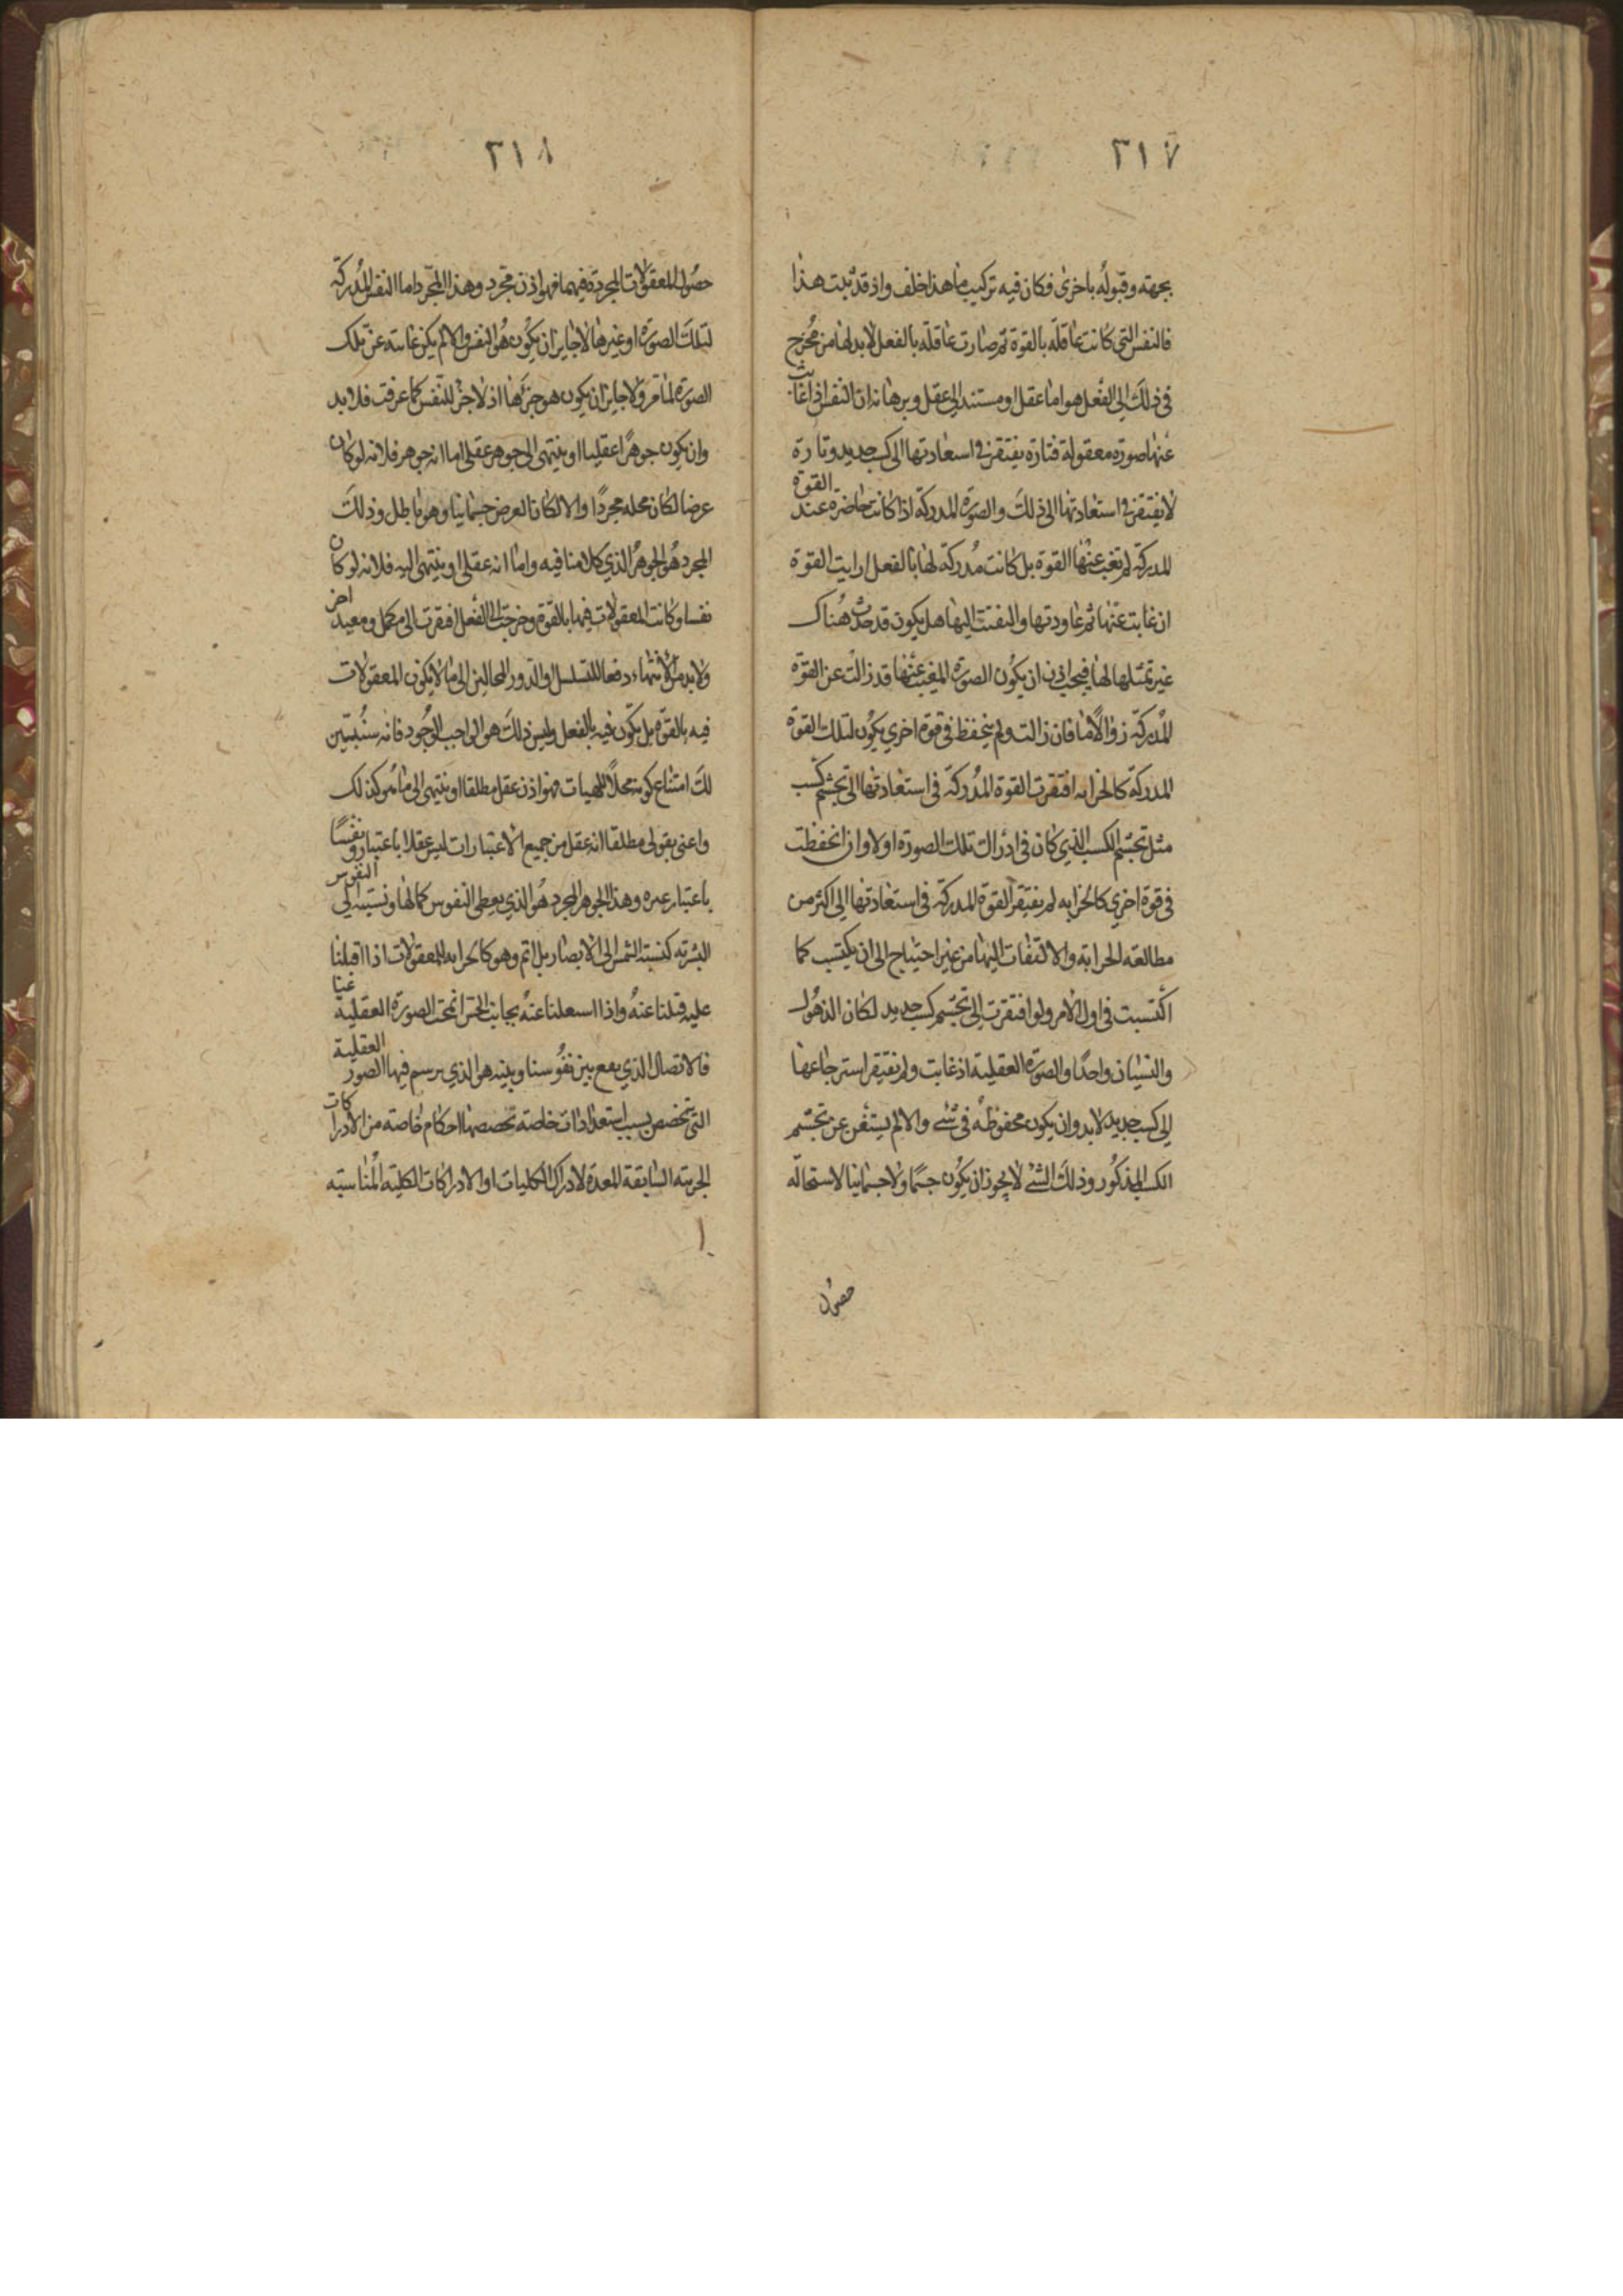 ٣١٧
بجهته وقبوله باخرى فكان فيه تركيب ما هذا خلف واذ قد ثبت هذا
فالنفس التي كانت عاقلة بالقوة ثم صارت عاقلة بالفعل لابد لها من مخرج
في ذلك الى الفعل هو اما عقل او مستند الى عقل وبرهانه ان النفس اذا غابت
عنها صورة معقولة فتارة يفتقر في استعادتها الى كسب جديد وتارة
لا يفتقر في استعادتها الى ذلك والصورة المدركة اذا كانت حاضرة عند القوة
المدركة لم تغب عنها القوة بل كانت مدركة لها بالفعل ارايت القوة
ان غابت عنها ثم عاودتها والتفتت اليها هل يكون قد حدث هناك
غير تمثلها لها فيجب اذن ان يكون الصورة المغيب عنها قد زالت عن القوة
المدركة زوالا ما فان زالت ولم ينحفظ في قوة اخري يكون لتلك القوة
المدركة كالخزانه افتقرت القوة المدركة في استعادتها الى تجشم كسب
مثل تجشم الكسب الذي كان في ادراك تلك الصورة اولا وان انحفظت
في قوة اخري كالخزانه لم يفتقر القوة المدركة في استعادتها الى اكثر من
مطالعه الخزانه والالتفات اليها من غير احتياج الى ان يكتسب كما
اكتسبت في اول الامر ولو افتقرت الى تجشم كسب جديد لكان الذهول
والنسيان واحدا والصورة العقلية اذ غابت ولم يفتقر استرجاعها
الى كسب جديد لابد وان يكون محفوظة في شئ والا لم يستغن عن تجشم
الكسب المذكور وذلك الشئ لا يجوز ان يكون جسما ولا جسمانيا لاستحاله
حصول
٣١٨
حصول المعقولات المجردة فيهما فهو اذن مجرد وهذا المجرد اما النفس المدركة
لتلك الصورة او غيرها لا جايز ان يكون هو النفس والا لم يكن غايبه عن تلك
الصورة لما مر ولا جايز ان يكون هو جزءها اذ لا جزء للنفس كما عرفت فلا بد
وان يكون جوهرا عقليا او ينتهي الى جوهر عقلي اما انه جوهر فلانه لو كان
عرضا لكان محله مجردا والا لكان العرض جسمانيا وهو باطل وذلك
المجرد هو الجوهر الذي كلامنا فيه واما انه عقلي او ينتهي اليه فلانه لو كان
نفسا وكانت المعقولات فيها بالقوة وخرجت الى الفعل افتقرت الى مكمل ومعيد اخر
ولا بد من الانتهاء دفعا للتسلسل والدور المحالين الى ما لا يكون المعقولات
فيه بالقوة بل يكون فيه بالفعل وليس ذلك هو الواجب الوجود فانه سنبين
لك امتناع كونه محلا للهيات فهو اذن عقل مطلقا او ينتهي الى ما هو كذلك
واعني بقولي مطلقا انه عقل من جميع الاعتبارات ليس عقلا باعتبار ونفسا
باعتبار غيره وهذا الجوهر المجرد هو الذي يعطي النفوس كمالها ونسبته الى النفوس
البشرية كنسبة الشمس الى الابصار بل اتم وهو كالخزانه للمعقولات اذا اقبلنا
عليه قبلنا عنه واذا اشتغلنا عنه بجانب الحس انمحت الصورة العقلية عنا
فالاتصال الذي يقع بين نفوسنا وبينه هو الذي يرسم فيها الصور العقلية
التي تخصص بسبب استعدادات خاصة تخصصها احكام خاصة من الادراكات
الجزيية السابقة المعدة لادراك الكليات او الادراكات الكلية المناسبه